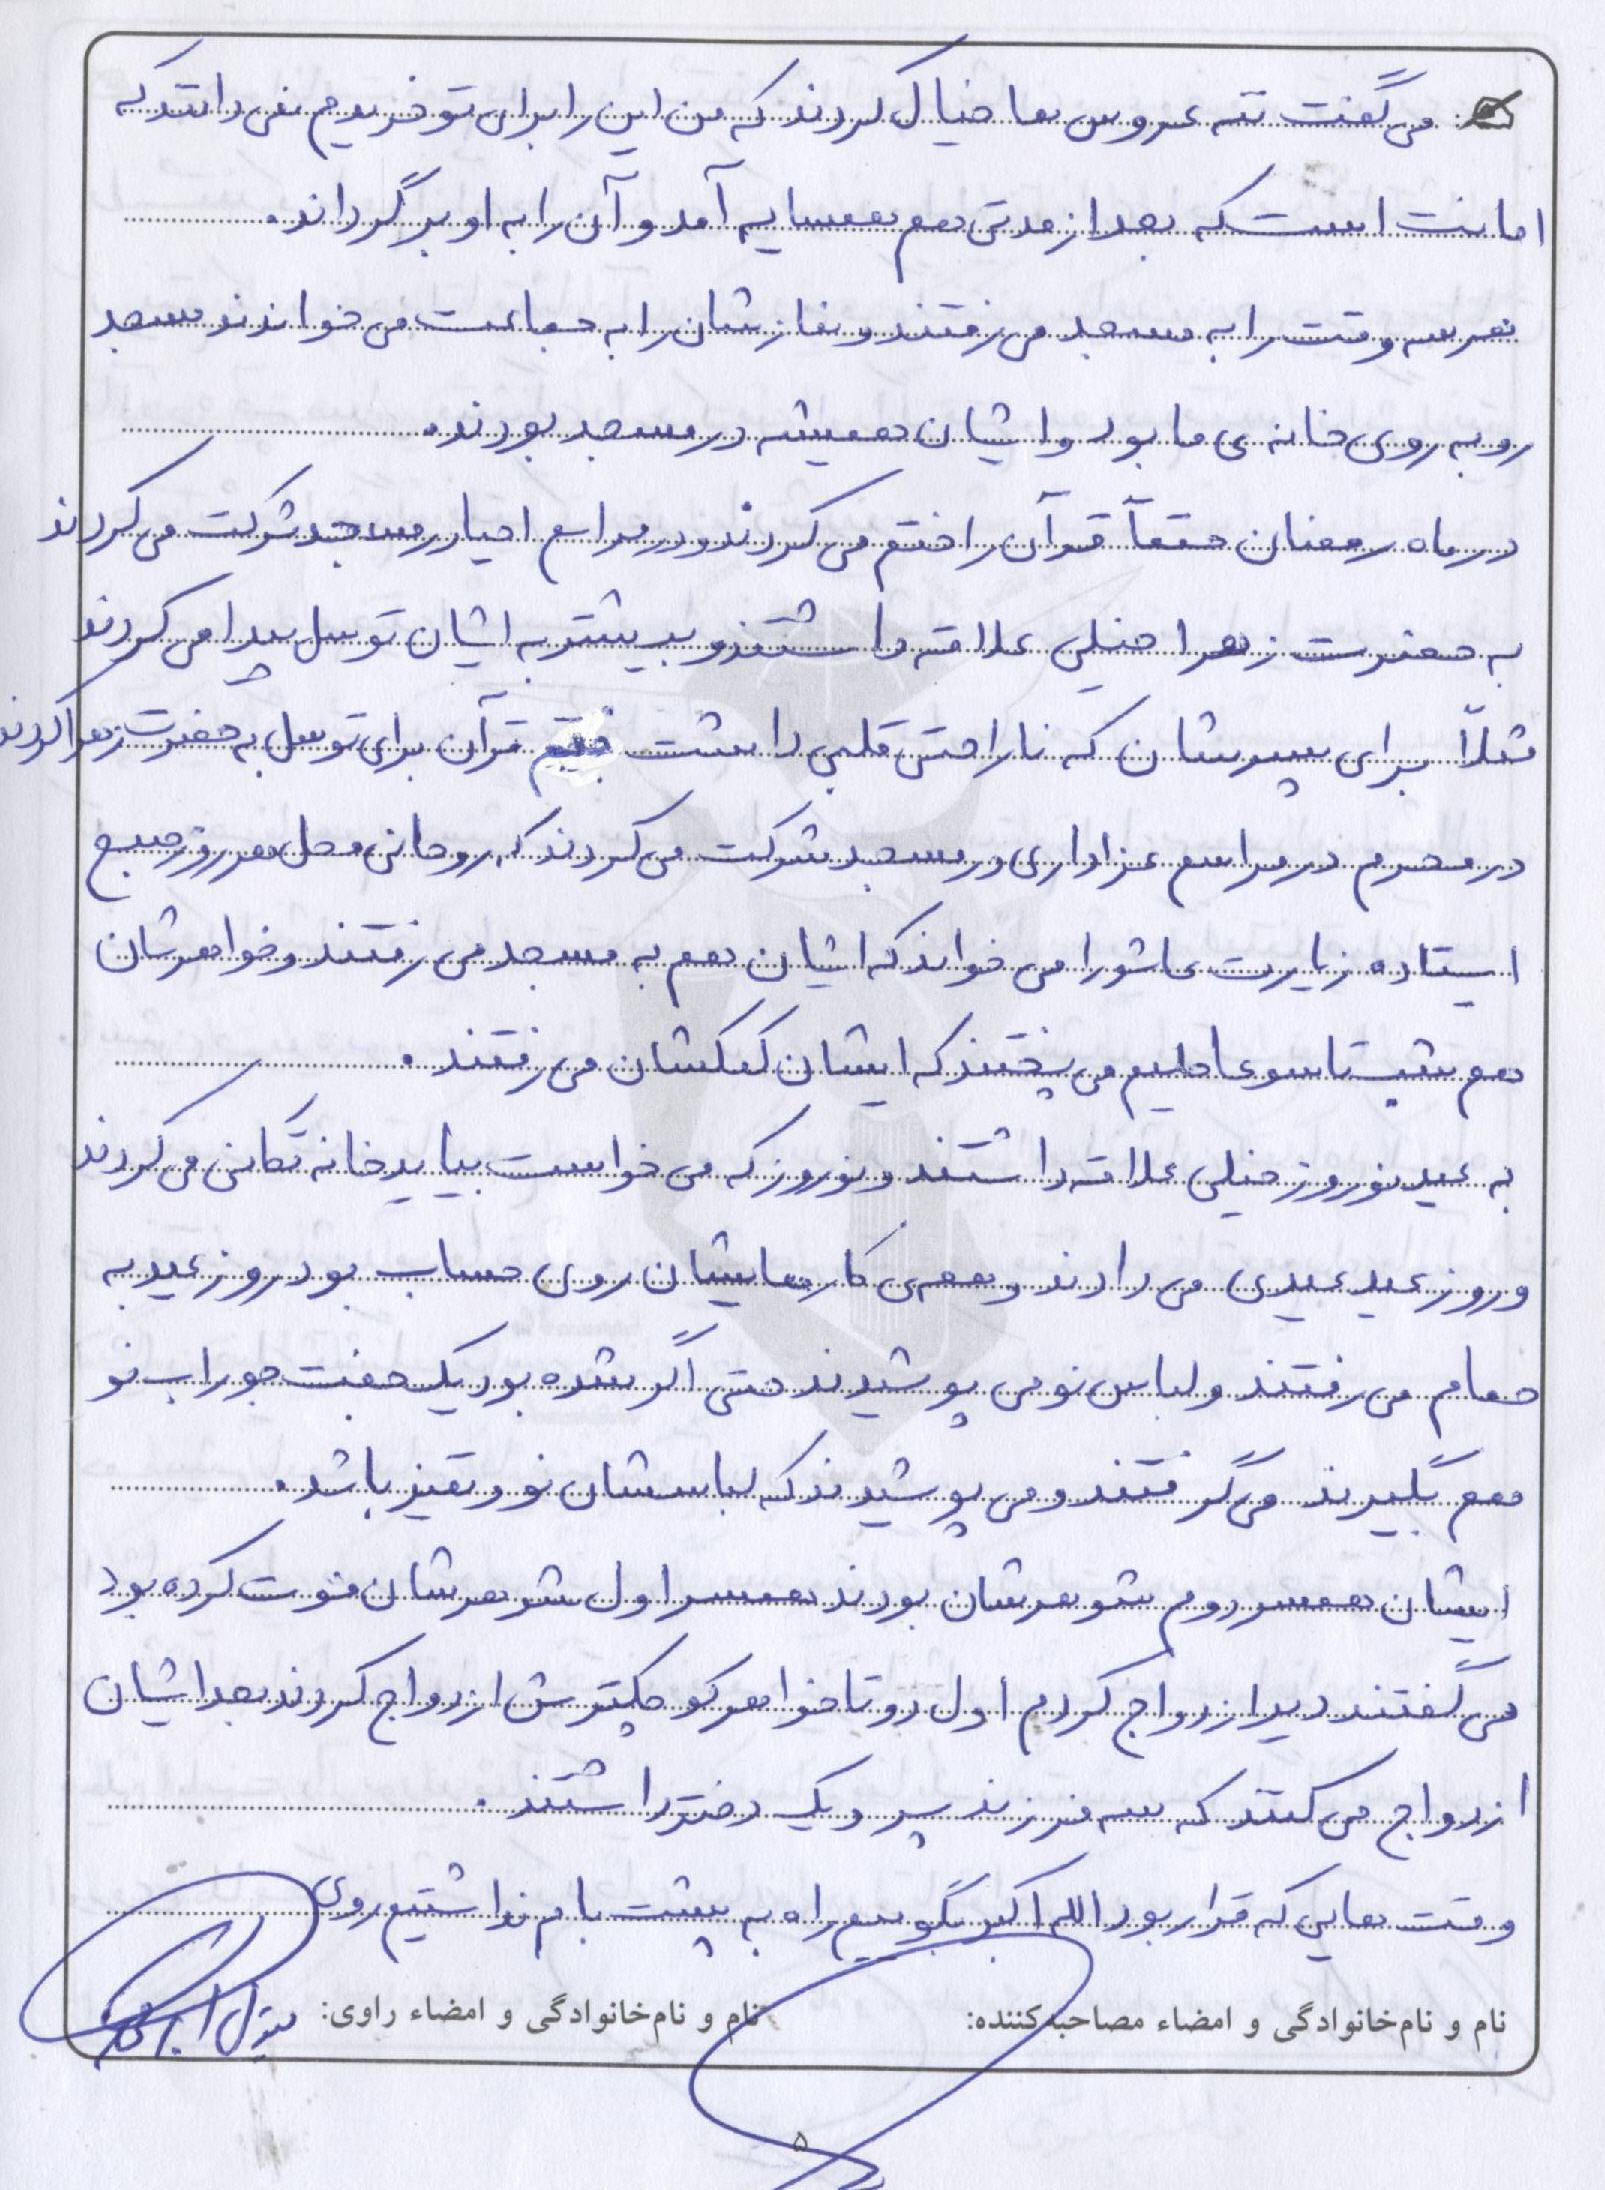 می گفت ننه عروس ها خیال کردند که من این را برای تو خریدم نمی دانند که
امانت است که بعد از مدتی هم همسایه آمد و آن را به او برگرداند.
هر سه وقت را به مسجد می رفتند و نمازشان را به جماعت می خواندند مسجد
رو به روی خانه ی ما بود و ایشان همیشه در مسجد بودند.
در ماه رمضان حتماً قرآن را ختم می کردند و در مراسم احیا در مسجد شرکت می کردند
به حضرت زهرا خیلی علاقه داشتند و بیشتر به ایشان توسل پیدا می کردند
مثلاً برای پسرشان که ناراحتی قلبی داشت ختم قرآن برای توسل به حضرت زهرا کردند
در محرم در مراسم عزاداری در مسجد شرکت می کردند که روحانی محل هر روز صبح
ایستاده زیارت عاشورا می خواند که ایشان هم به مسجد می رفتند و خواهرشان
هم شب تاسوعا حلیم می پختند که ایشان کمکشان می رفتند.
به عید نوروز خیلی علاقه داشتند و نوروز که می خواست بیاید خانه تکانی می کردند
و روز عید عیدی می دادند و همه ی کارهایشان روی حساب بود روز عید به
حمام می رفتند و لباس نو می پوشیدند حتی اگر شده بود یک جفت جوراب نو
هم بگیرند می گرفتند و می پوشیدند که لباسشان نو و تمیز باشد.
ایشان همسر دوم شوهرشان بودند همسر اول شوهرشان فوت کرده بود
می گفتند دیر ازدواج کردم اول دو تا خواهر کوچکترش ازدواج کردند بعد ایشان
ازدواج می کنند که سه فرزند پسر و یک دختر داشتند.
وقت هایی که قرار بود الله اکبر بگوییم راه به پشت بام نداشتیم روی
نام و نام‌خانوادگی و امضاء مصاحبه‌کننده: نام و نام‌خانوادگی و امضاء راوی:
۵